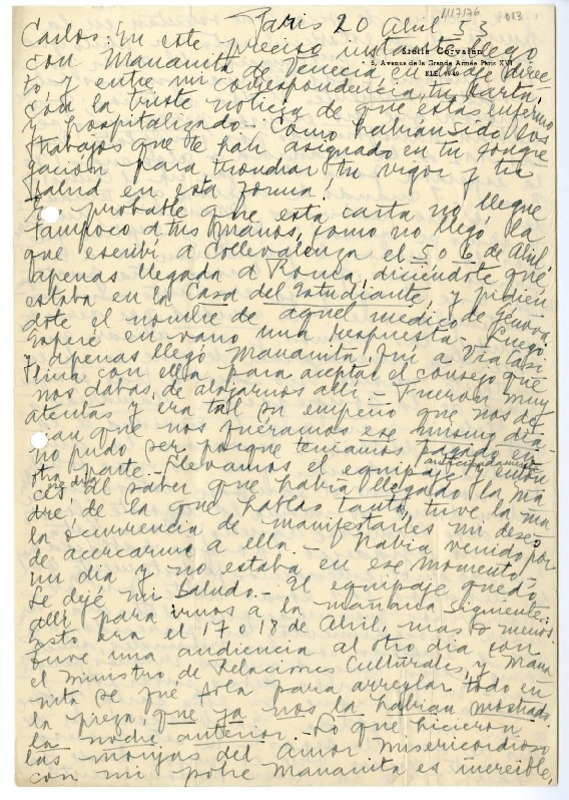 11/17/76 013
Paris 20 Abril 53
Stella Corvalán
5, Avenue de la Grande Armée Paris XVI
Carlos: En este preciso instante llego
con Mananita de Venecia en viaje direc-
to y entre mi correspondencia, tu carta,
con la triste noticia de que estás enfermo
y hospitalizado. Cómo habrán sido los
trabajos que te han asignado en tu congre
gación para tronchar tu vigor y tu
salud en esta forma!
Es probable que esta carta no llegue
tampoco a tus manos, como no llegó la
que escribí a Collevalenza el 5 o 6 de Abril,
apenas llegada a Roma, diciéndote que
estaba en la Casa del Estudiante, y pidién
dote el nombre de aquel médico de Génova
Esperé en vano una respuesta. Luego,
y apenas llegó Mananita, fui a Via Casi
lina con ella para aceptar el consejo que
nos dabas, de alojarnos allí. Fueron muy
atentas y era tal su empeño que nos de
cían que nos fuéramos ese mismo día-
no pudo ser porque teníamos pagado en
otra parte. Llevamos el equipaje y enton
anticipadamente
ces al saber que había llegado la ma
ese día
dre, de la que hablas tanto, tuve la ma
la ocurrencia de manifestarles mi deseo
de acercarme a ella. - Había venido por
un día y no estaba en ese momento.
Le dejé mi saludo. - El equipaje quedó
allí para irnos a la mañana siguiente:
Esto era el 17 o 18 de Abril, mas o menos.
Tuve una audiencia al otro día con
el Ministro de Relaciones Culturales, y Mana
nita se fué sola para arreglar todo en
la pieza, que ya nos la habían mostrado
la noche anterior. Lo que hicieron
las monjas del Amor Misericordioso
con mi pobre Mananita es increíble,